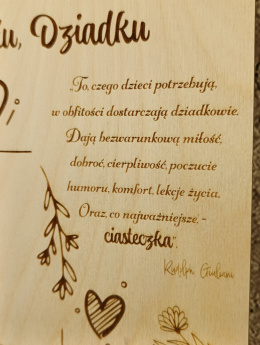 u, Dziadku
„To, czego dzieci potrzebują,
w obfitości dostarczają dziadkowie.
Dają bezwarunkową miłość,
dobroć, cierpliwość, poczucie
humoru, komfort, lekcje życia.
Oraz, co najważniejsze, -
ciasteczka”.